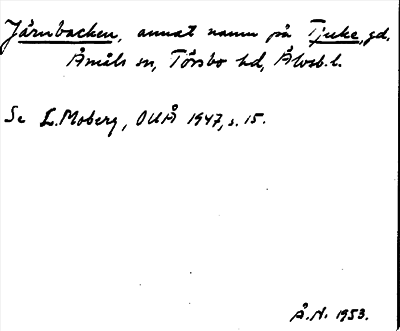 Järnbacken, annat namn på Tjuke, gd,
Åmåls sn, Tössbo hd, Älvsb. l.
Se L. Moberg, OUÅ 1947, s. 15.
Å.N. 1953.